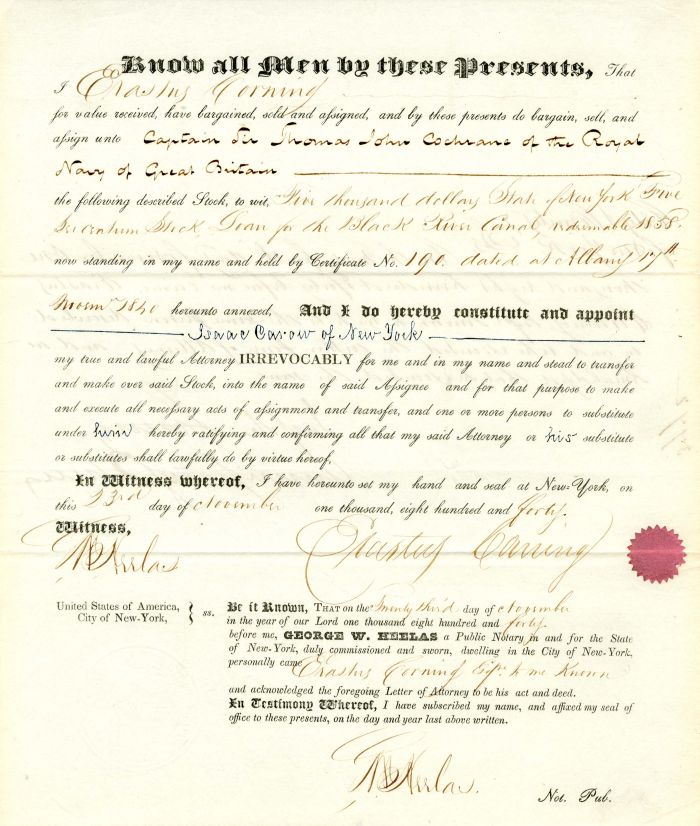 Know all Men by these Presents, That
I Erastus Corning
for value received, have bargained, sold and assigned, and by these presents do bargain, sell, and
assign unto Captain Sir Thomas John Cochrane of the Royal
Navy of Great Britain
the following described Stock, to wit, Five thousand dollars State of New York Five
per centum Stock, Loan for the Black River Canal, redeemable 1858.
now standing in my name and held by Certificate No. 190. dated at Albany 17th
Novemr 1840 hereunto annexed, And I do hereby constitute and appoint
Isaac Carow of New York
my true and lawful Attorney IRREVOCABLY for me and in my name and stead to transfer
and make over said Stock, into the name of said Assignee and for that purpose to make
and execute all necessary acts of assignment and transfer, and one or more persons to substitute
under him hereby ratifying and confirming all that my said Attorney or his substitute
or substitutes shall lawfully do by virtue hereof,
In Witness whereof, I have hereunto set my hand and seal at New-York, on
this 23rd day of November one thousand, eight hundred and forty.
Witness,
Erastus Corning
United States of America,
City of New-York,
ss.
Be it Known, THAT on the Twenty third day of November
in the year of our Lord one thousand eight hundred and forty
before me, GEORGE W. HEELAS a Public Notary in and for the State
of New-York, duly commissioned and sworn, dwelling in the City of New-York,
personally came Erastus Corning Esqr. to me Known
and acknowledged the foregoing Letter of Attorney to be his act and deed.
In Testimony Whereof, I have subscribed my name, and affixed my seal of
office to these presents, on the day and year last above written.
Not. Pub.